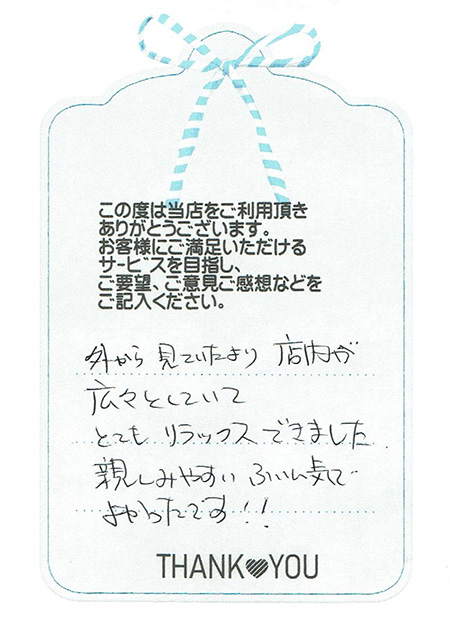 この度は当店をご利用頂き
ありがとうございます。
お客様にご満足いただける
サービスを目指し、
ご要望、ご意見ご感想などを
ご記入ください。
外から見ていたより 店内が
広々としていて
とても リラックスできました
親しみやすい ふんい気で
よかったです!!
THANK♥YOU